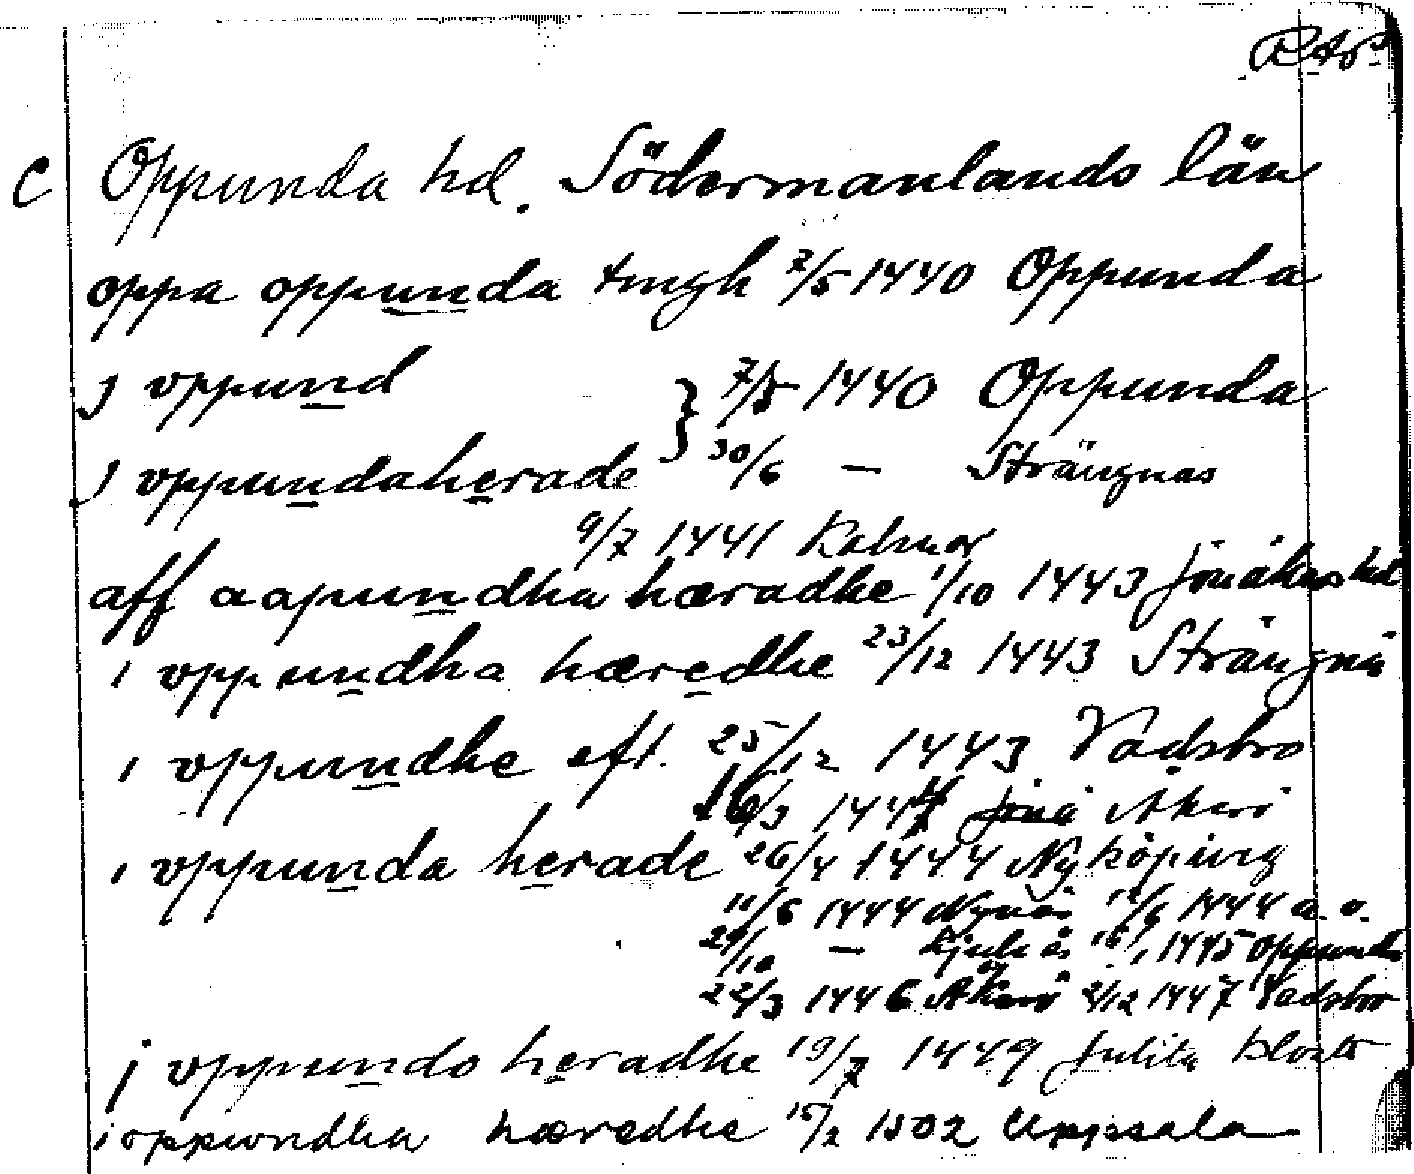 C Oppunda hd. Södermanlands län
oppa oppunda tingh 7/5 1440 Oppunda
j vppund } 7/5 1440 Oppunda
j vppundaherade 30/6 — Strängnäs
9/7 1441 Kalmar
aff aapundha hæradhe 1/10 1443 Jönåkers hd
i vppundha hæredhe 23/12 1443 Strängnä
i vppundhe eft. 25/12 1443 Vadsbro
16/3 1444 Åkerö
i vppunda herade 26/4 1444 Nyköping
11/6 1444 Nynäs 12/6 1444 a. o.
29/10 — 1445 Oppunda
22/3 1446 Åkerö 2/12 1447 Vadsbro
j vppundo heradhe 19/7 1449 Julita kloster
i oppwndha hæredhe 15/2 1502 Uppsala